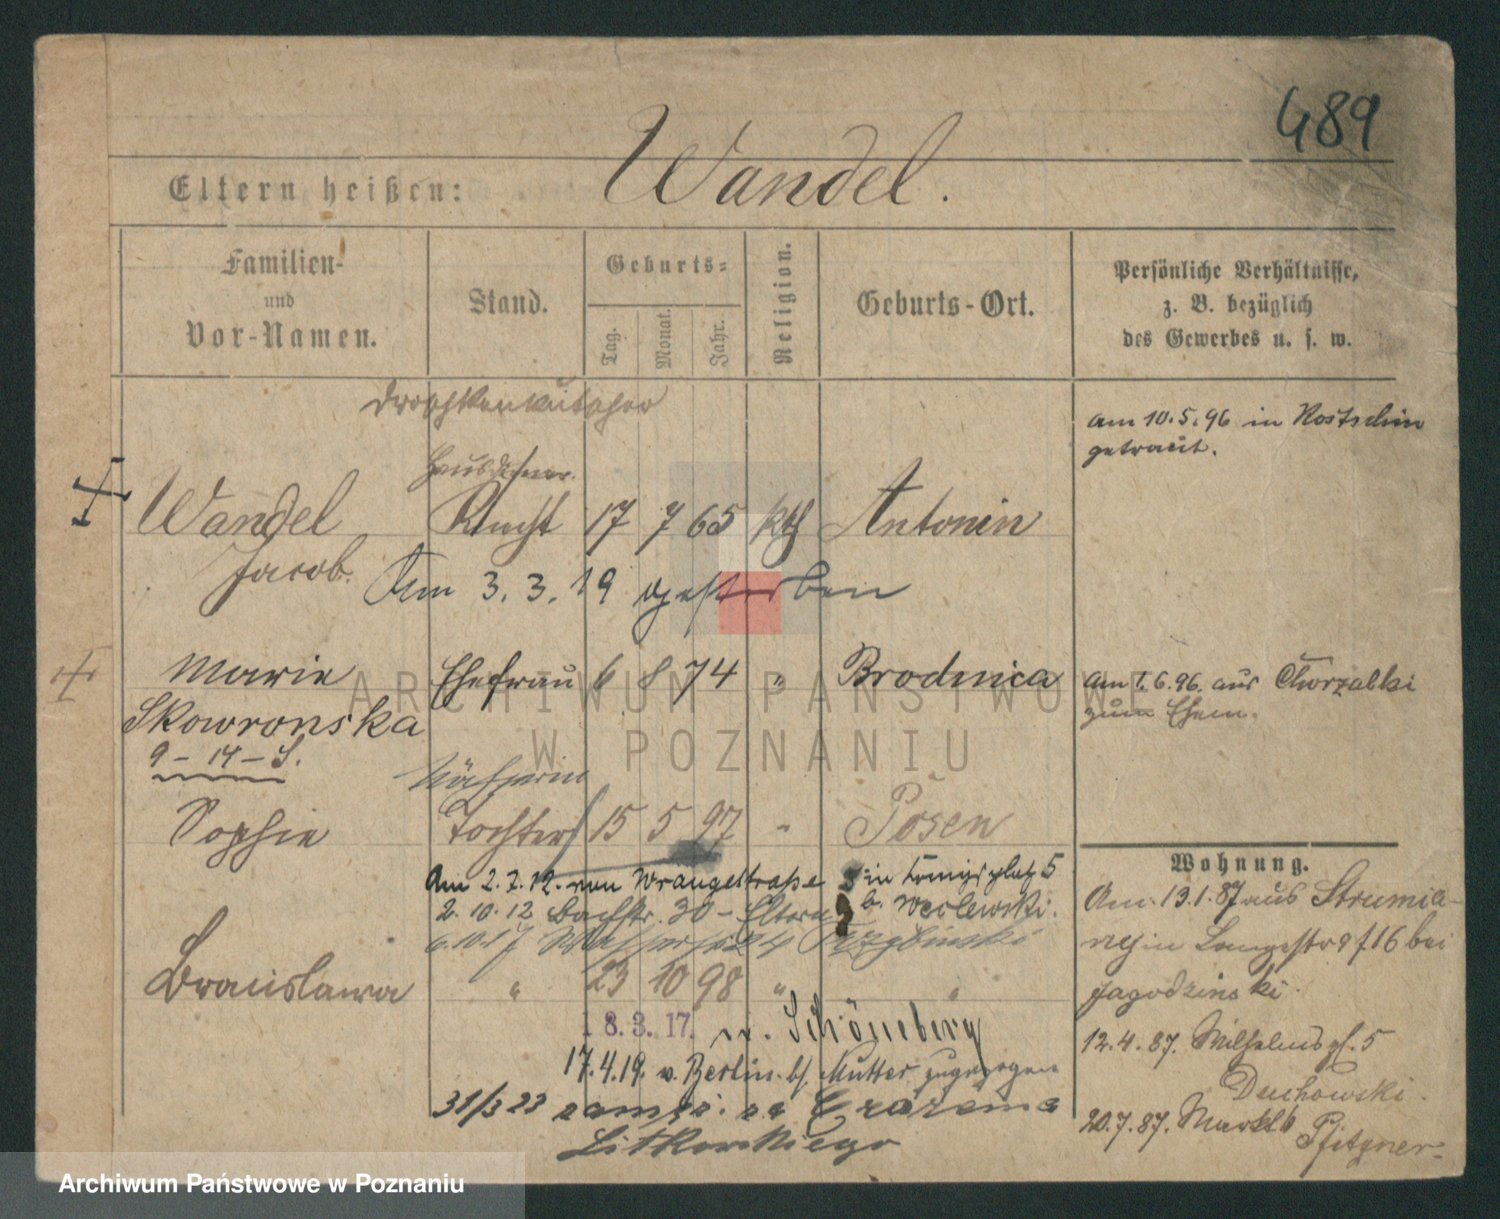 489
Eltern heißen: Wandel.
Familien-
und
Vor-Namen.
Stand.
Geburts-
Tag.
Monat.
Jahr.
Religion.
Geburts-Ort.
Persönliche Verhältnisse,
z. B. bezüglich
des Gewerbes u. s. w.
Droschkenkutscher
Hausdiener.
Wandel Knecht 17 7 65 kth Antonin
Jacob.
Am 3.3.19 gestorben
am 10.5.96 in Kostschin
getraut.
Marie Ehefrau 6 8 74 " Brodnica
Skowronska
9-14-S.
am 1.6.96. aus Chorzalki
zum Ehem.
Nähterin
Sophie Tochter 15 5 97 " Posen
Am 2.7.12. von Wrangelstraße in Königsplatz 5
2.10.12 Bachstr. 30 - Eltern b. Weclewski.
6.10.17
Bronislawa " 23 10 98 " "
18.3.17. n. Schöneberg
17.4.19. v. Berlin b/ Mutter zugezogen
31/3 23 zamęż. za Erazma
Litkowskiego
Wohnung.
Am 13.1.87 aus Strumia-
in Langestraße 16 bei
Jagodzinski.
12.4.87. Wilhelmspl. 5
Duchowski.
20.7.87. Markt 6
Pfitzner
ARCHIWUM PAŃSTWOWE
W POZNANIU
Archiwum Państwowe w Poznaniu